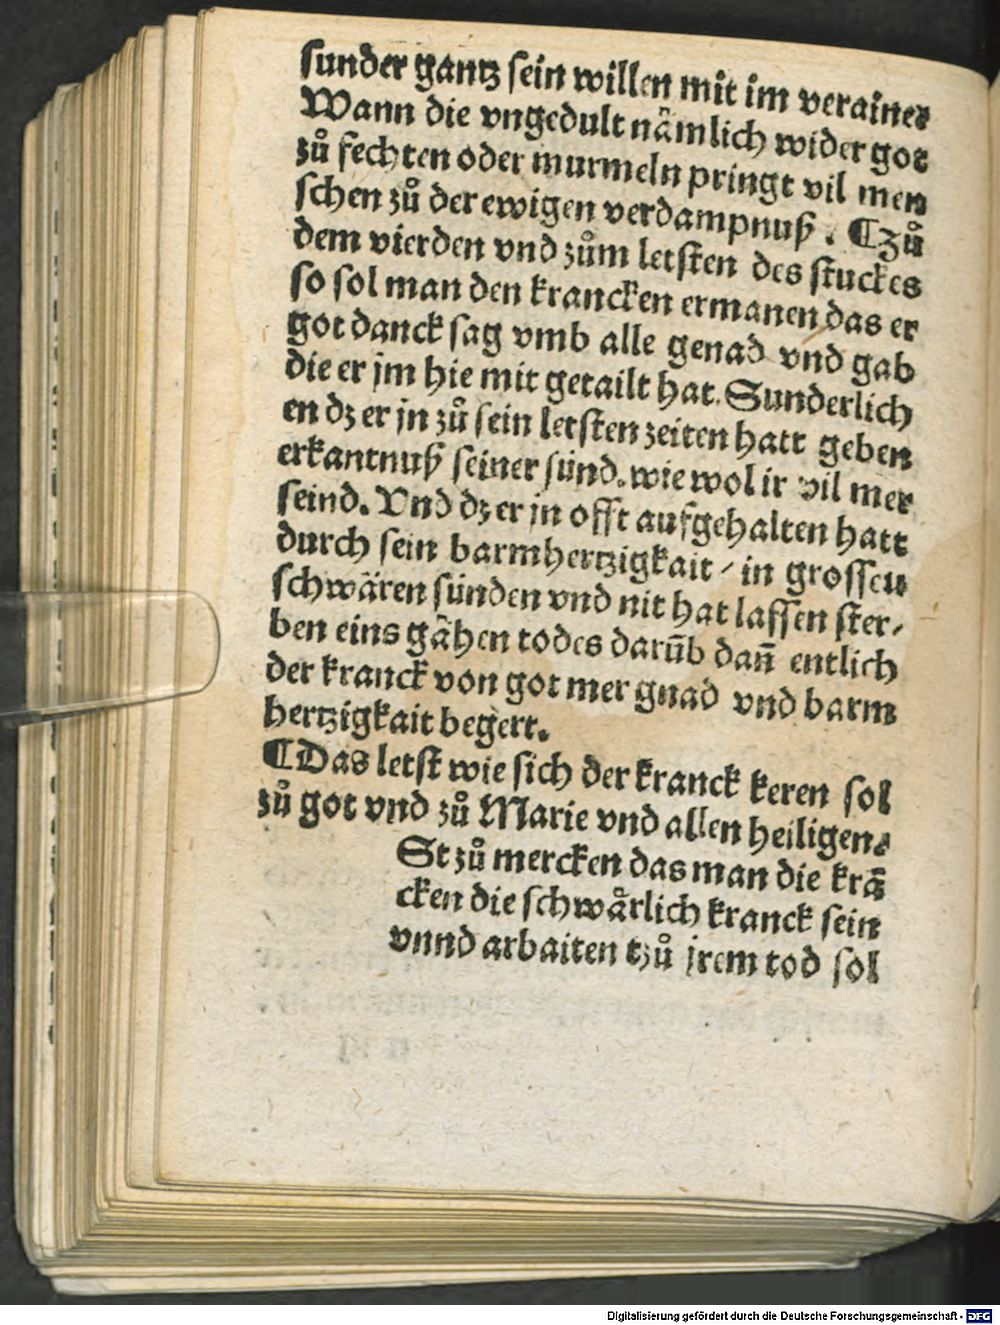 sunder gantz sein willen mit im verainet
Wann die vngedult nämlich wider got
zů fechten oder murmeln pringt vil men
schen zů der ewigen verdampnuß . ¶Zů
dem vierden vnd zům letsten des stuckes
so sol man den krancken ermanen das er
got danck sag vmb alle genad vnd gab
die er jm hie mit getailt hat. Sunderlich
en dz er jn zů sein letsten zeiten hatt geben
erkantnuß seiner sünd. wie wol ir vil mer
seind. Vnd dz er jn offt aufgehalten hatt
durch sein barmhertzigkait / in grossen
schwären sünden vnd nit hat lassen ster/
ben eins gähen todes darūb dañ entlich
der kranck von got mer gnad vnd barm
hertzigkait begert.
¶Das letst wie sich der kranck keren sol
zů got vnd zů Marie vnd allen heiligen.
St zů mercken das man die krā
cken die schwårlich kranck sein
vnnd arbaiten tzů jrem tod sol
Digitalisierung gefördert durch die Deutsche Forschungsgemeinschaft - DFG